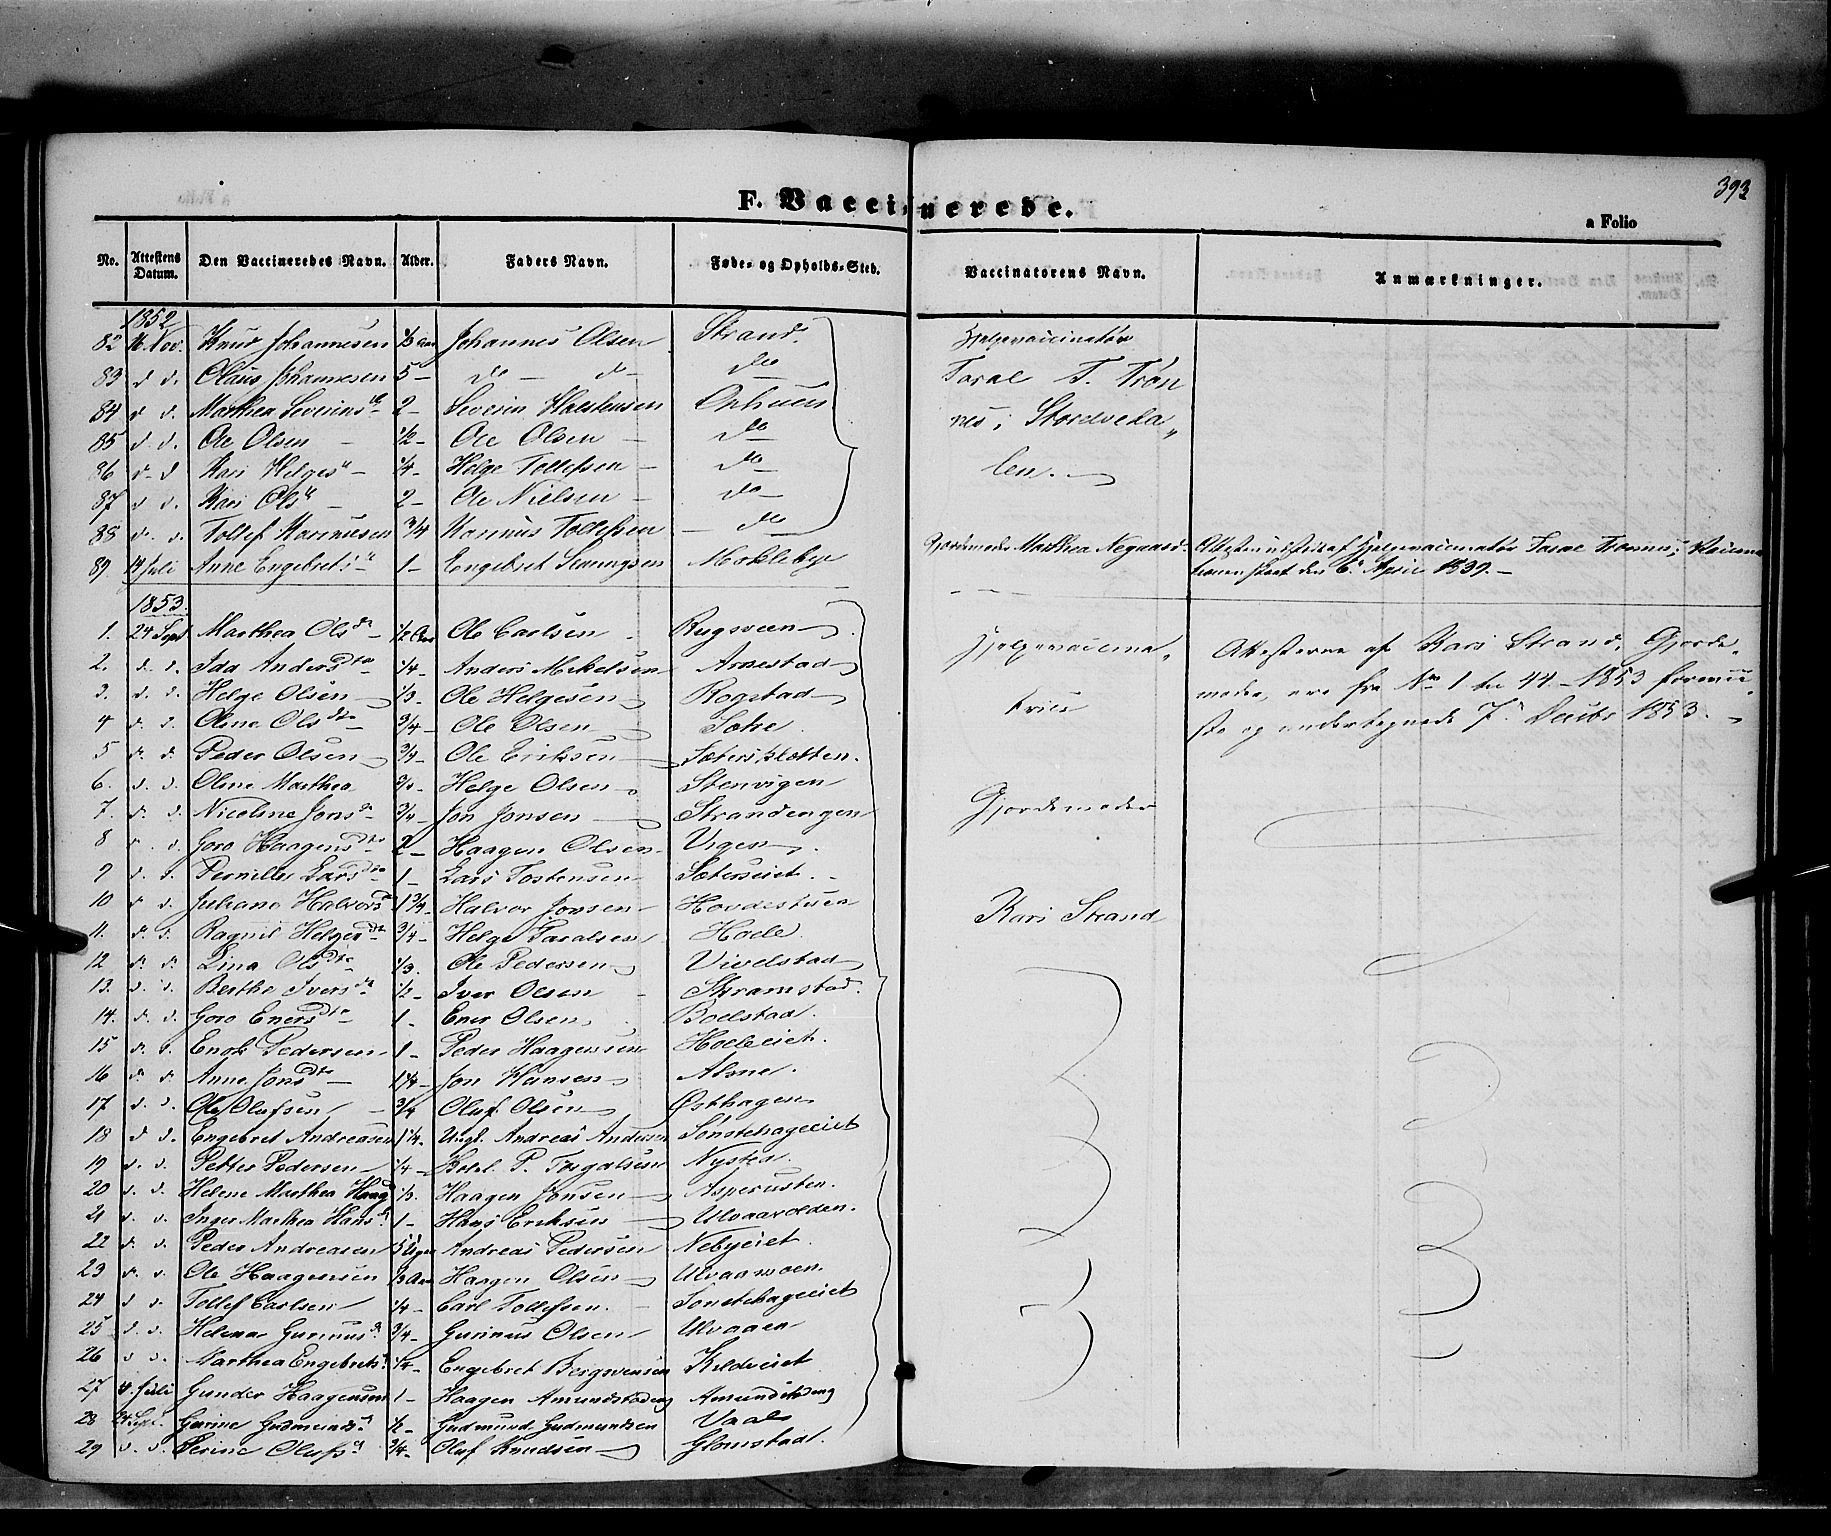 393
F. Vaccinerede.
a Folio
No. Attestens Datum. Den Vaccineredes Navn. Alder. Faders Navn. Føde- og Opholds-Sted. Vaccinatorens Navn. Anmærkninger.
1852
82 16 Nov. Knud Johannesen 1/3 Aar Johannes Olsen Strand. Hjelpevaccinatør
83 d d. Olaus Johannesen 5 - do - do - do Taral T. Trøn
84 d d. Mathea Severinsd 2 - Severin Halstensen Ophuus nes i Stordveda„
85 d. d. Ole Olsen - 1/2 - Ole Olsen - do len.
86 d. d Kari Helgesd - 1/4 - Helge Tollefsen - do
87 d d. Kari Olsd - 2 - Ole Nielsen - do -
88 d. d. Tollef Rasmusen 3/4 Rasmus Tollefsen - do
89 14 Juli Anne Engebretsd 1 - Engebret Mokleby Gjordemoder Marthea Negaard. Attesten udstedt af Hjelpevaccinatør Taral Trønnes; Vaccina
tionen skeet den 6 April 1839. -
1853.
1. 24 Sept Marthea Olsdr - 1/2 Aar Ole Carlsen Rugsveen
2. d. d. Ida Andersdtr 1/4 - Anders Mikelsen Arnestad Hjelpevaccina„ Attesterne af Kari Strand, Gjorde„
3. d. d. Helge Olsen 1/3 - Ole Helgesen Rogstad moder, ere fra No 1 til 44 - 1853
4 d. d. Oline Olsdtr 3/4 - Ole Olsen Sætre trice
5 d. d. Peder Olsen 3/4 - Ole Eriksen Sætersletten. ste og undertegnede 7 Decbr 1853. -
6. d. d. Oline Marthea Helge Olsen Stenvigen
7. d. d. Nicoline Jonsd 3/4 - Jon Jonsen Strandengen Gjordemoder
8 d. d. Goro Haagensdtr 2 - Haagen Olsen Vigen
9 d. d. Pernille Larsdtr 1 - Lars Tostensen Sæterseiet.
10 d. d. Juliane Halvorsd 1 3/4 Halvor Jonsen Hovdestuen Kari Strand
11. d. d. Ragnil Helgesdtr 3/4 - Helge Taralsen Hoele.
12 d. d. Lina Olsdtr 1/3. Ole Pedersen Vivelstad
13. d. d. Berthe Iversd 1/2 - Iver Olsen Skramstad.
14. d. d. Goro Enersdtr 1 - Ener Olsen Boelstad.
15 d. d. Enok Pedersen 1 - Peder Haagensen Hoeleeiet.
16 d. d. Anne Jonsdtr - 1 1/4 - Jon Hansen Alme.
17 d. d. Ole Olufsen 3/4 Oluf Olsen Østhagen
18 d d. Engebret Andreasen 1 1/4. Ungl. Andreas Andersen Sønstehageeiet
19 d. d. Petter Pedersen 1/4 - P. Nysted.
20 d. d. Helene Marthea Haagd 1/3. Haagen Jonsen Asperusten.
21 d. d. Inger Marthea Hansd 1 - Hans Eriksen Ulvaavolden.
22 d. d. Peder Andreasen 5 Uger Andreas Pedersen Nebyeiet.
23 d. d. Ole Haagensen 1/3 Aar Haagen Olsen Ulvaamoen.
24 d d. Tollef Carlsen 1/4 - Carl Tollefsen. Sønstehageeiet
25 d. d. Helena Gunnusd 3/4 - Gunnus Olsen Ulvaaen
26 d d. Marthea Engebretsd 1/4 - Engebret Bergsvensen Kildeeiet
27 4 Juli Gunder Haagensen 1 - Haagen Amundstadeng Amundstadeng
28 24 Sept. Gurine Gudmundsd 1/2 - Gudmund Gudmundsen Vaal
29 d. d. Serine Olufsd 3/4 - Oluf Knudsen Glomstad.